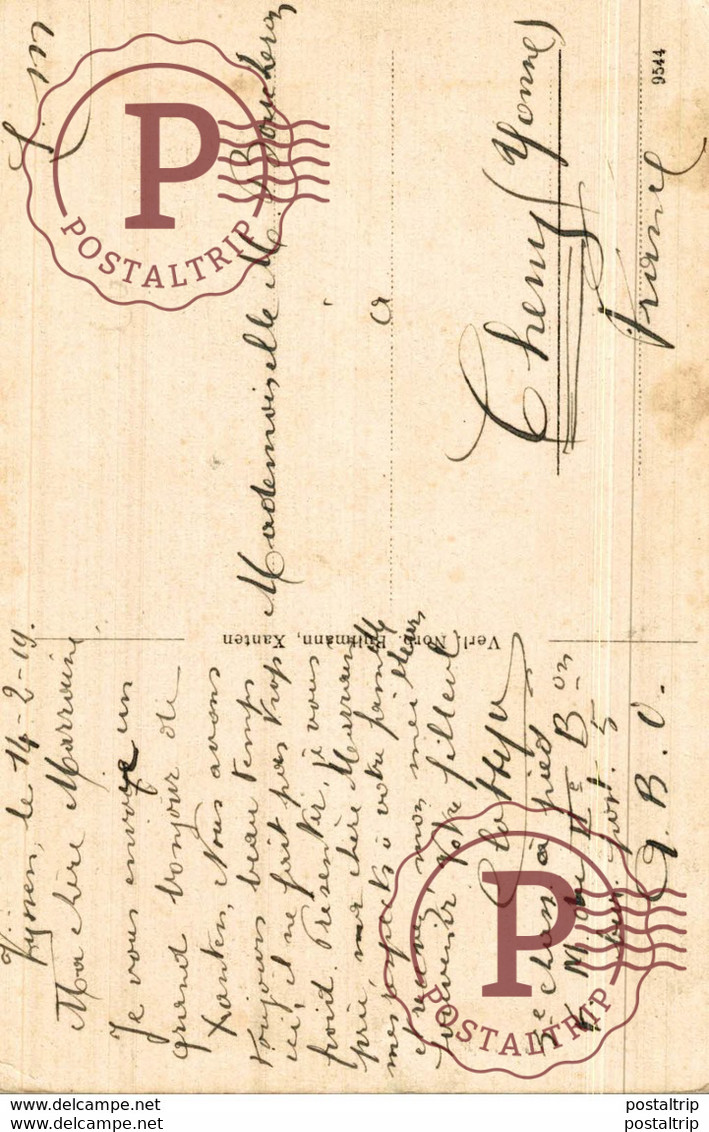 le 14-2-19.
Ma chère Marraine
Je vous envoye un
grand bonjour de
Xanten, Nous avons
toujours beau temps
ici, il ne fait pas trop
froid. Présenter, je vous
prie, ma chère Marraine
mes respects à votre famille
mon meilleur
souvenir Votre filleul
à pied
G. B. D.
Verl. Norb. Xanten
F. M
Mademoiselle M. Boucheron
à
Cheny (Yonne)
France
9544
P
POSTALTRIP
P
POSTALTRIP
www.delcampe.net
www.delcampe.net
postaltrip
postaltrip